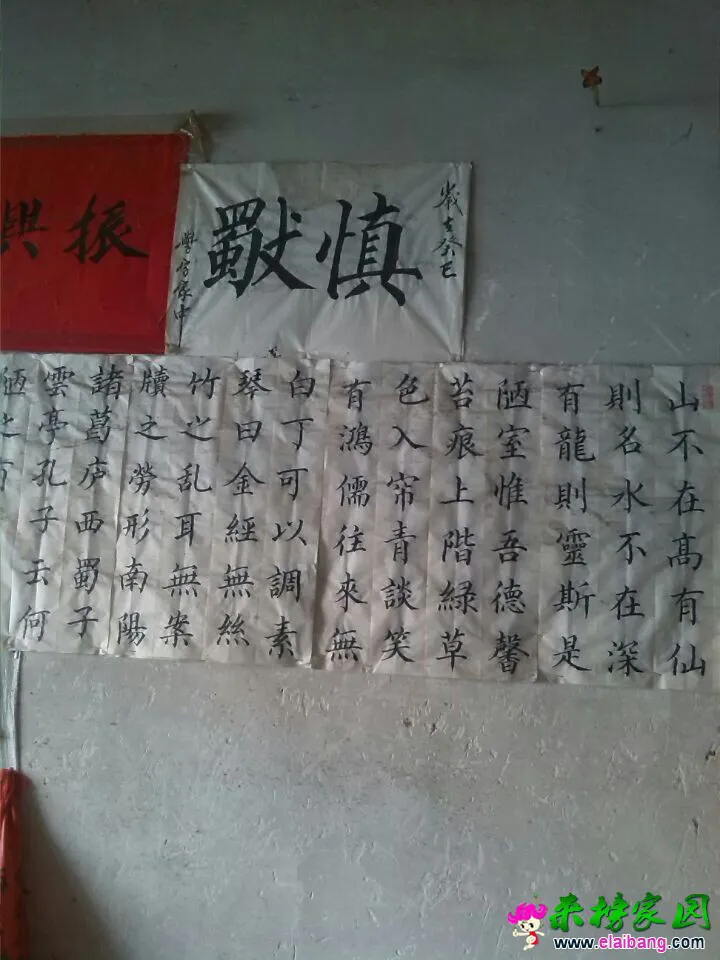 振興
歲在癸巳
慎獨
山不在高有仙
則名水不在深
有龍則靈斯是
陋室惟吾德馨
苔痕上階緑草
色入帘青談笑
有鴻儒往來無
白丁可以調素
琴曰金經無絲
竹之乱耳無案
牘之勞形南陽
諸葛庐西蜀子
雲亭孔子云何
陋之有
来榜家园
www.elaibang.com